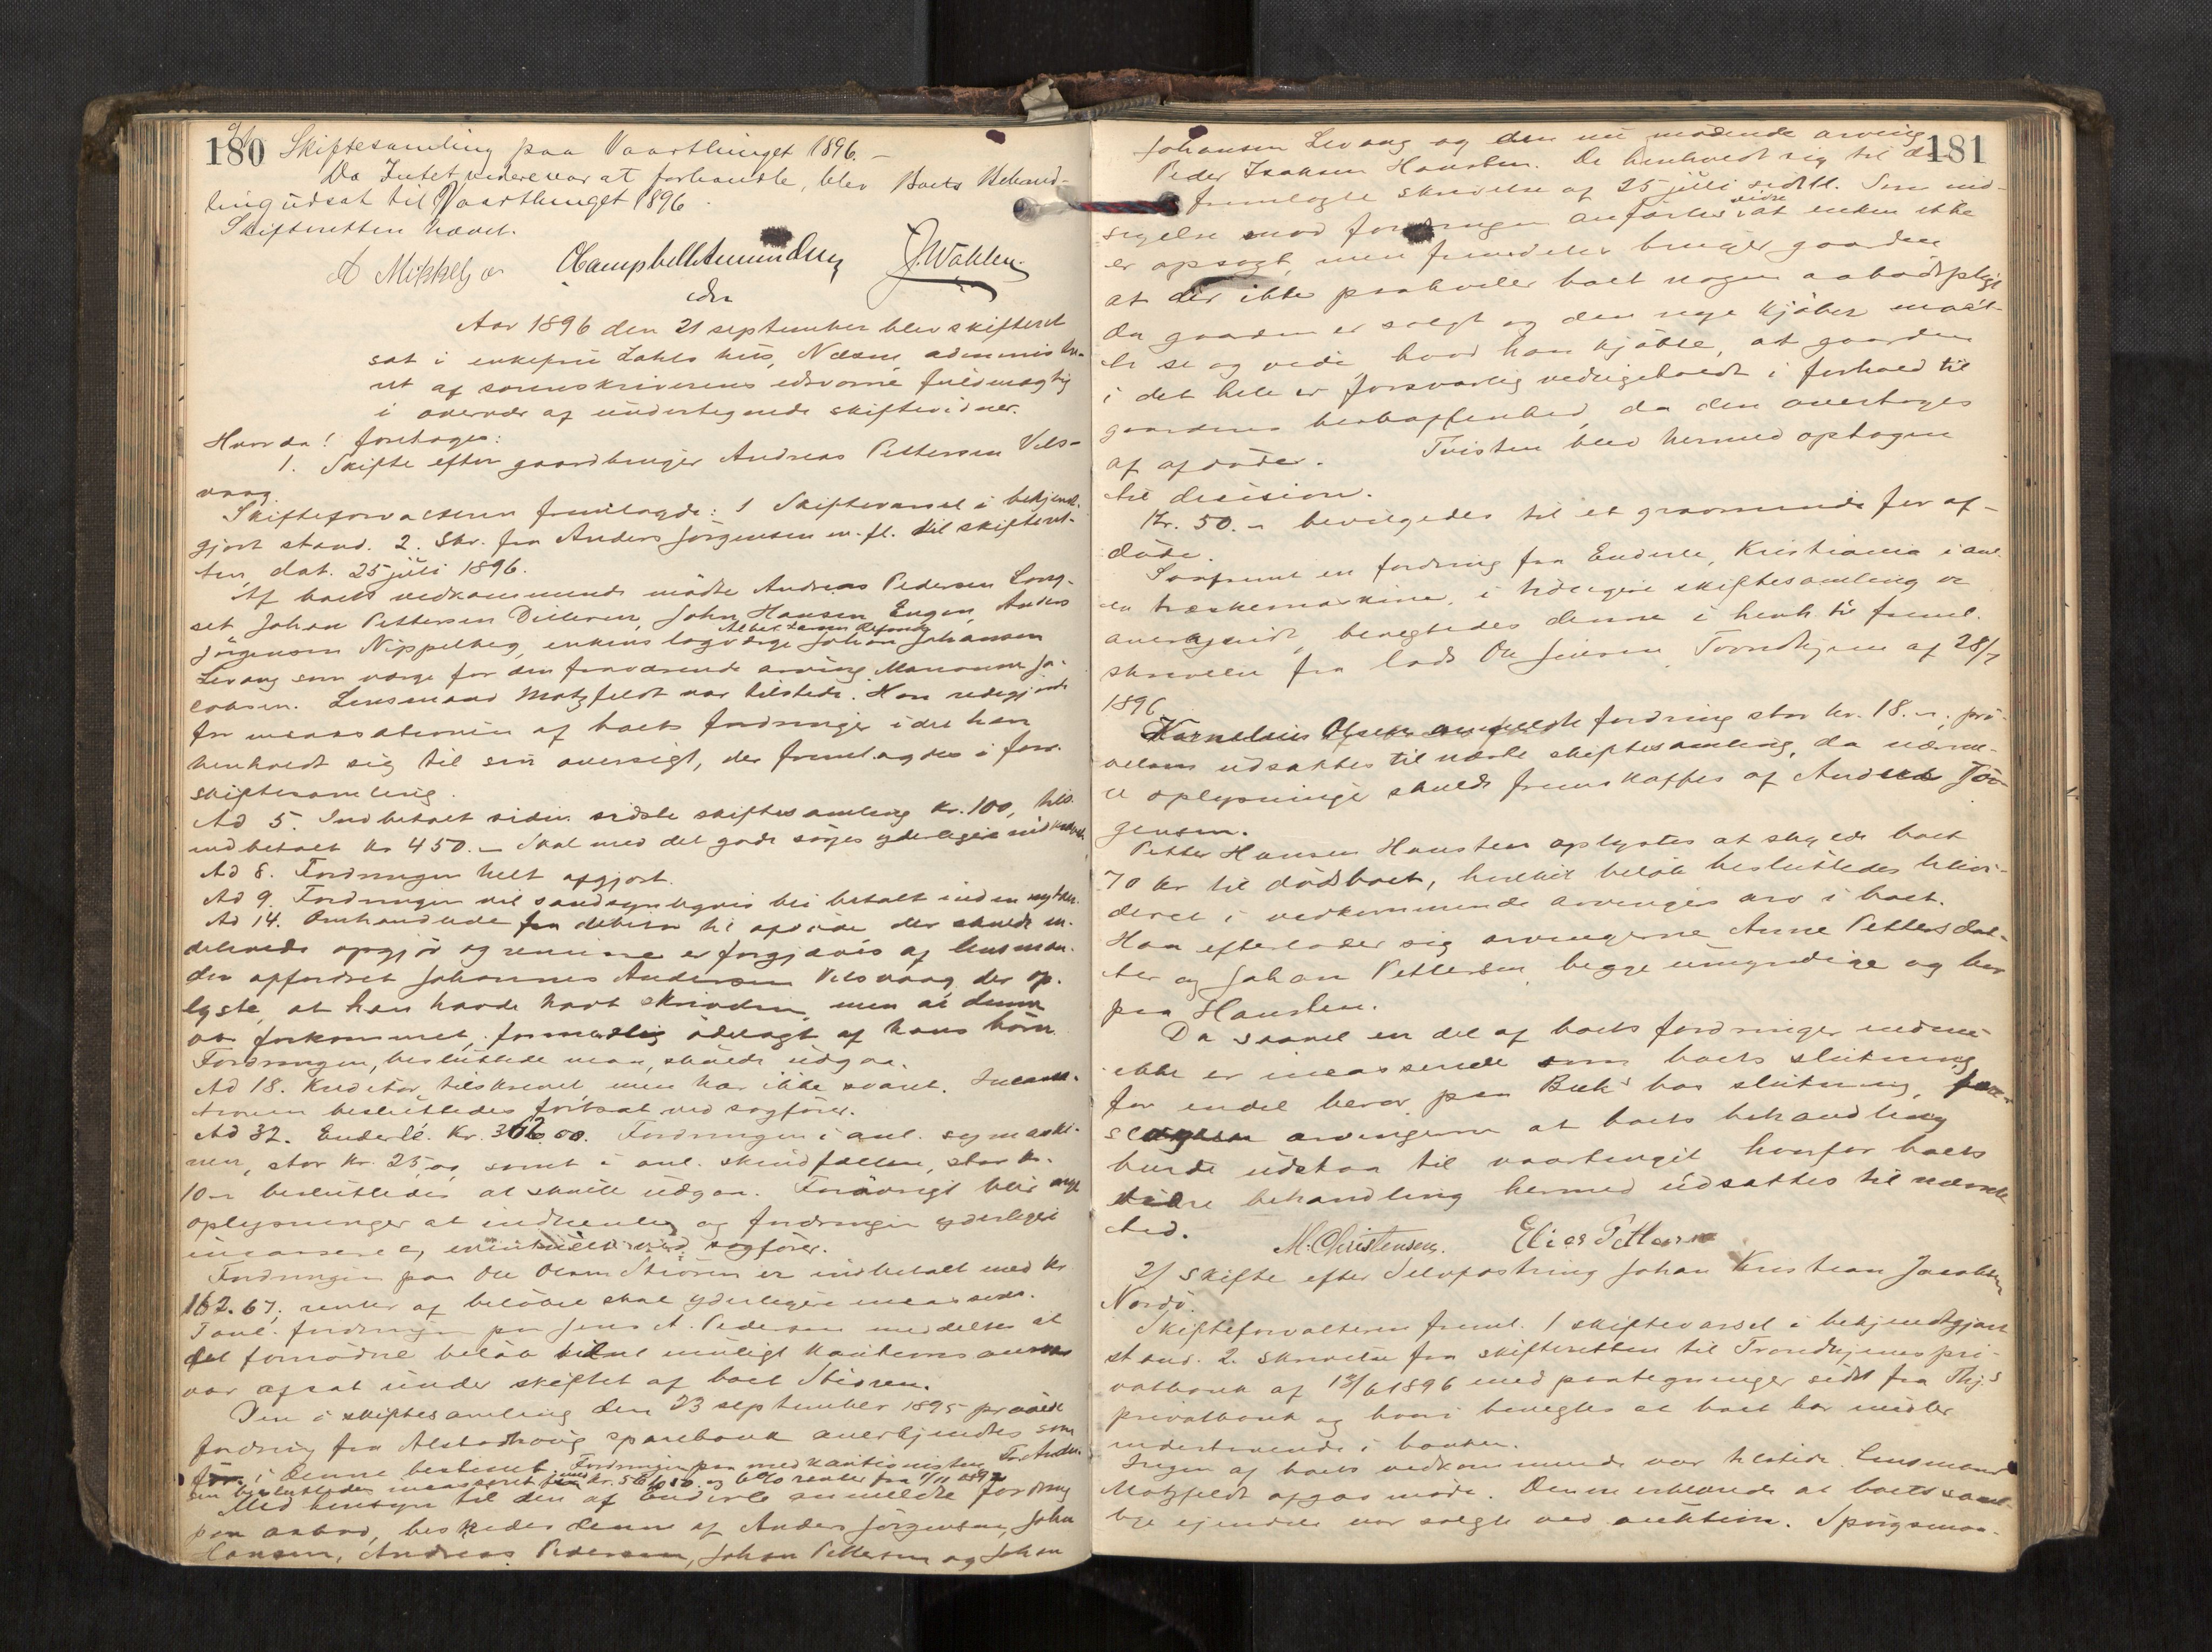 180
Skiftesamling paa Vaarthinget 1896. –
Da Intet videre var at forhandle, blev Boets Behand-
ling udsat til Vaarthinget 1896.
Skifteretten hævet.
OCampbellAmundsen J. Wahlen
Aar 1896 den 21 september blev skifteret
sat i enkefru Zahls hus, Næsne, administre-
ret af sorenskriverens edsvorne fuldmægtig
i overvær af undertegnede skiftevidner.
Hvorda! foretoges:
1. Skifte efter gaardbruger Andreas Pettersen Vels-
vaag.
Skifteforvalteren fremlagde: 1 Skiftevarsel i bekjendt-
gjort stand. 2. Skr. fra Anders Jørgensen m. fl. til skifteret-
ten, dat. 25 juli 1896.
Af boets vedkommende mødte Andreas Pedersen Long-
set, Johan Pettersen Dilleren, John Hansen Engen, Anders
Jørgensen Nippelberg, enkens lagværge Johan Johansen
Levang som værge for den fraværende arving Marianne Ja-
cobsen. Lensmand Motzfeldt var tilstede. Han redegjorde
for incassationen af boets fordringer idet han
henholdt sig til sin oversigt, der fremlagdes i forr.
skiftesamling.
Ad 5. Indbetalt siden sidste skiftesamling kr. 100, tils.
indbetalt kr 450. – Skal med det gode søges yderligere
Ad 8. Fordringen helt opgjort.
Ad 9. Fordringen vil sandsynligvis bli betalt inden nytaar.
Ad 14. Omhandlede fra debitor til afdøde der skulde in-
deholde opgjør og remisse er forgjæves af lensman-
den opfordret Johannes Andersen Velsvaag der op-
lyste, at han havde havt skrivelsen, men at denne
var forkommet, formodentlig ødelagt af hans børn.
Fordringen, besluttede man, skulde udgaa.
Ad 18. Kreditor tilskrevet men har ikke svaret. Incassa-
tionen besluttedes fortsat ved sagfører.
Ad 32. Enderlé. Kr. Fordringen i anl. symaski-
nen, stor kr. 25,00, samt i anl. skindfællen, stor kr.
10 – besluttedes at skulle udgaa. Forøvrigt blir
oplysninger at indhente og fordringen yderligere
incassere, eventuelt ved sagfører.
Fordringen paa Ole Olsen Stioren er indbetalt med kr
162.67; renter af beløbet skal yderligere incasseres.
I anl. fordringen paa Jens A. Pedersen meddeltes at
det fornødne beløb til muligt kautionsansvar
var afsat under skiftet af boet Stioren.
Den i skiftesamling den 23 september 1895 prøvede
fordring fra Alstadhoug sparebank anerkjendtes som
før i denne bestemt. Fordringen paa medkautionisten
Med hensyn til den af Enderle anmeldte fordring
paa aabod, beskedes denne af Anders Jørgensen, John
Hansen, Andreas Pedersen, Johan Pettersen og Johan
181
Johansen Levang og den nu mødende arving
Peder Isaksen Hausten. De henholdt sig til den
fremlagte skrivelse af 25 juli sidstl. Som ind-
sigelse mod fordringen anførtes videre at enken ikke
er opsagt, men fremdeles bruger gaarden
at der ikke paahviler boet nogen aabodspligt
da gaarden er solgt og den nye kjøber maat-
te se og vide hvad han kjøbte, at gaarden
i det hele er forsvarlig vedligeholdt i forhold til
gaardens beskaffenhed, da den overtoges
af afdøde. Tvisten blev hermed optagen
til decision.
Kr. 50. – bevilgedes til et gravminde for af-
døde.
Saafremt en fordring fra Enderle, Kristiania i anl.
en træskemaskine, i tidligere skiftesamling er
anerkjendt, benegtedes denne i henh. til freml.
skrivelse fra lods Ole Jensen Trondhjem af 28/7
1896.
Kornelius Olsens anmeldte fordring stor kr. 18. –, prø-
velsen udsattes til næste skiftesamling, da nærme-
re oplysninger skulde fremskaffes af Anders Jør-
gensen.
Petter Hansen Hausten oplystes at skylde boet
70 kr til dødsboet, hvilket beløb besluttedes likvi-
deret i vedkommende arvinges arv i boet.
Han efterlader sig arvingerne Anne Pettersdat-
ter og Johan Pettersen, begge umyndige og bor
paa Hausten.
Da saavel en del af boets fordringer endnu
ikke er incasserede som boets slutning
for endel beror paa Buk's bos slutning, fore-
sloges arvingerne at boets behandling
burde udstaa til vaartinget hvorfor boets
videre behandling hermed udsattes til nævnte
tid.
M. Christensen. Elias Pettersen
2/ Skifte efter Selvpostring Johan Kristian Jacobsen
Nordø.
Skifteforvalteren freml. 1 skiftevarsel i bekjendtgjort
stand. 2. skrivelse fra skifteretten til Trondhjems pri-
vatbank af 13/6 1896 med paategninger sidst fra Thj.s
privatbank og hvori benegtes at boet har midler
indestaaende i banken.
Ingen af boets vedkommende var tilstede. Lensmand
Motzfeldt afgav møde. Denne erklærede at boets saml-
lige eiendele var solgte ved auktion. Spørgsmaa-